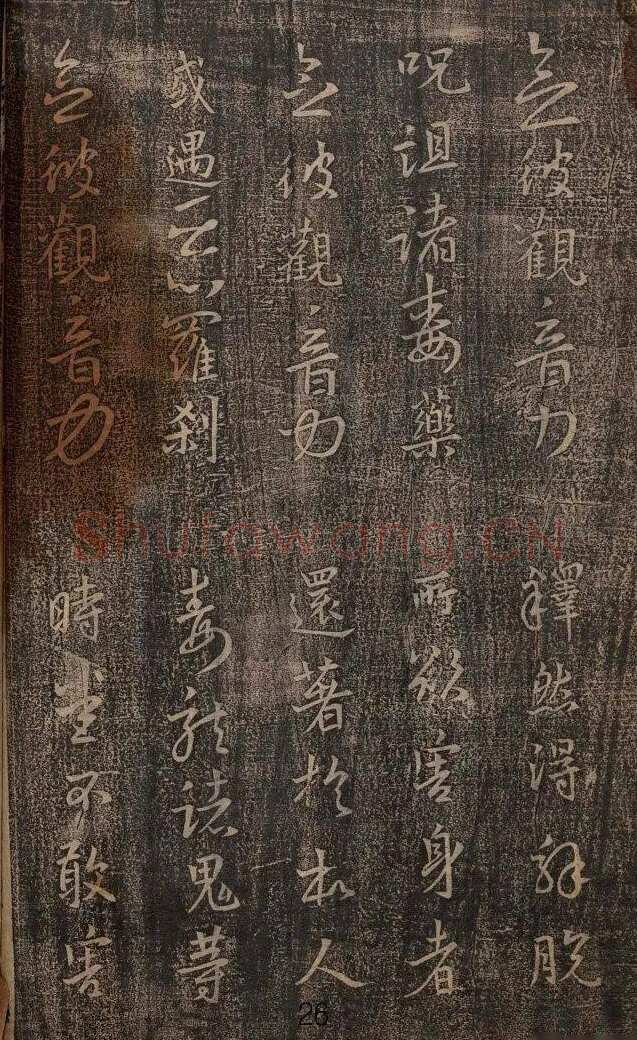 念彼觀音力 釋然得解脫
呪詛諸毒藥 所欲害身者
念彼觀音力 還著於本人
或遇惡羅刹 毒龍諸鬼等
念彼觀音力 時悉不敢害
Shufawang.CN
26